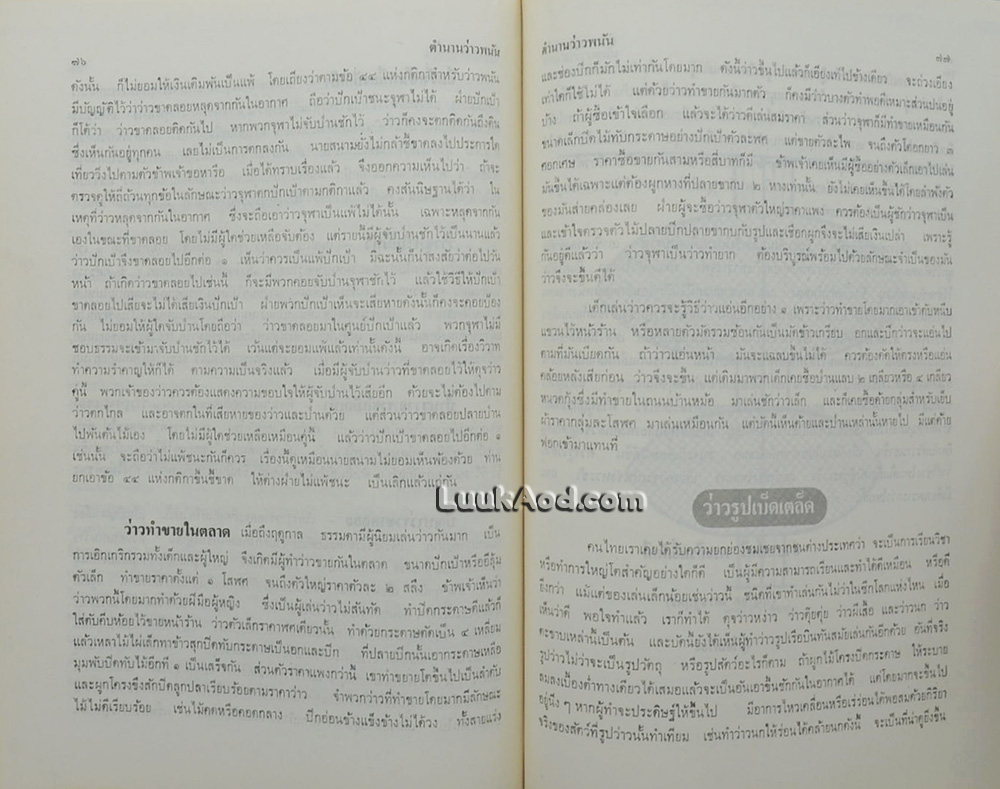 ๗๖
ตำนานว่าวพนัน
ดังนั้น ก็ไม่ยอมให้เงินเดิมพันเป็นแพ้ โดยเถียงว่าตามข้อ ๔๔ แห่งกติกาสำหรับว่าวพนัน
มีบัญญัติไว้ว่าว่าวขาดลอยหลุดจากกันในอากาศ ถือว่าปักเป้าชนะจุฬาไม่ได้ ฝ่ายปักเป้า
ก็โต้ว่า ว่าวขาดลอยติดกันไป หากพวกจุฬาไม่จับป่านชักไว้ ว่าวก็คงจะตกติดกันถึงดิน
ซึ่งเห็นกันอยู่ทุกคน เลยไม่เป็นการตกลงกัน นายสนามยังไม่กล้าชี้ขาดลงไปประการใด
เที่ยววิ่งไปตามตัวข้าพเจ้าขอหารือ เมื่อได้ทราบเรื่องแล้ว จึงออกความเห็นไปว่า ถ้าจะ
ตรวจดูให้ถี่ถ้วนทุกข้อในลักษณะว่าวจุฬาตกปักเป้าตามกติกาแล้ว คงสันนิษฐานได้ว่า ใน
เหตุที่ว่าวหลุดจากกันในอากาศ ซึ่งจะถือเอาว่าวจุฬาเป็นแพ้ไม่ได้นั้น เฉพาะหลุดจากกัน
เองในขณะที่ขาดลอย โดยไม่มีผู้ใดช่วยเหลือจับต้อง แต่รายนี้มีผู้จับป่านชักไว้เป็นนานแล้ว
ว่าวปักเป้าจึงขาดลอยไปอีกต่อ ๑ เห็นว่าควรเป็นแพ้ปักเป้า มิฉะนั้นก็น่าสงสัยว่าต่อไปวัน
หน้า ถ้าเกิดว่าวขาดลอยไปเช่นนี้ ก็จะมีพวกคอยจับป่านจุฬาชักไว้ แล้วใช้วิธีให้ปักเป้า
ขาดลอยไปเสียจะไม่ได้เสียเงินปักเป้า ฝ่ายพวกปักเป้าเห็นจะเสียหายดังนั้นก็คงจะคอยป้อง
กัน ไม่ยอมให้ผู้ใดจับป่านโดยถือว่า ว่าวขาดลอยมาในศูนย์ปักเป้าแล้ว พวกจุฬาไม่มี
ชอบธรรมจะเข้ามาจับป่านชักไว้ได้ เว้นแต่จะยอมแพ้แล้วเท่านั้นดังนี้ อาจเกิดเรื่องวิวาท
ทำความรำคาญให้ก็ได้ ตามความเป็นจริงแล้ว เมื่อมีผู้จับป่านว่าวที่ขาดลอยไว้ให้ดุจว่าว
คู่นี้ พวกเจ้าของว่าวควรต้องแสดงความขอบใจให้ผู้จับป่านไว้เสียอีก ด้วยจะไม่ต้องไปตาม
ว่าวตกไกล และอาจตกในที่เสียหายของว่าวและป่านด้วย แต่ส่วนว่าวขาดลอยปลายป่าน
ไปพันต้นไม้เอง โดยไม่มีผู้ใดช่วยเหลือเหมือนคู่นี้ แล้วว่าวปักเป้าขาดลอยไปอีกต่อ ๑
เช่นนั้น จะถือว่าไม่แพ้ชนะกันก็ควร เรื่องนี้ดูเหมือนนายสนามไม่ยอมเห็นพ้องด้วย ท่าน
ยกเอาข้อ ๔๔ แห่งกติกาขึ้นชี้ขาด ให้ต่างฝ่ายไม่แพ้ชนะ เป็นเลิกแล้วแก่กัน
ว่าวทำขายในตลาด เมื่อถึงฤดูกาล ธรรมดามีผู้นิยมเล่นว่าวกันมาก เป็น
การเอิกเกริกรวมทั้งเด็กและผู้ใหญ่ จึงเกิดมีผู้ทำว่าวขายกันในตลาด ขนาดปักเป้าหรืออีลุ้ม
ตัวเล็ก ทำขายราคาตั้งแต่ ๑ โสฬศ จนถึงตัวใหญ่ราคาตัวละ ๒ สลึง ข้าพเจ้าเห็นว่า
ว่าวพวกนี้โดยมากทำด้วยฝีมือผู้หญิง ซึ่งเป็นผู้เล่นว่าวไม่สันทัด ทำปิดกระดาษดีแล้วก็
ใส่ตับคีบห้อยไว้ขายหน้าร้าน ว่าวตัวเล็กราคาฬศเดียวนั้น ทำด้วยกระดาษตัดเป็น ๔ เหลี่ยม
แล้วเหลาไม้ไผ่เล็กทาข้าวสุกปิดทับกระดาษเป็นอกและปีก ที่ปลายปีกนั้นเอากระดาษเหลือ
มุมพับปิดทับไม้อีกที่ ๑ เป็นเสร็จกัน ส่วนตัวราคาแพงกว่านี้ เขาทำขยายโตขึ้นไปเป็นลำดับ
และผูกโครงขึงสักปิดลูกปลาเรียบร้อยตามราคาว่าว จำพวกว่าวที่ทำขายโดยมากมีลักษณะ
ไม้ไม่ดีเรียบร้อย เช่นไม้คดหรือคอดกลาง ปีกอ่อนข้างแข็งข้างไม่ได้วง ทั้งสายแร่ง
ตำนานว่าวพนัน
๗๗
และช่องปีกก็มักไม่เท่ากันโดยมาก ดังนี้ว่าวขึ้นไปแล้วก็เอียงเทไปข้างเดียว จะถ่วงเอียง
เท่าใดก็ใช้ไม่ได้ แต่ด้วยว่าวทำขายกันมากตัว ก็คงมีว่าวบางตัวทำพอดีเหมาะส่วนปนอยู่
บ้าง ถ้าผู้ซื้อเข้าใจเลือก แล้วจะได้ว่าวดีเล่นสมราคา ส่วนว่าวจุฬาก็มีทำขายเหมือนกัน
ขนาดเล็กปิดไม้ทับกระดาษอย่างปักเป้าตัวละฬศ แต่ขายตัวละไพ จนถึงตัวโตอกยาว ๓
ศอกเศษ ราคาซื้อขายกันสามหรือสี่บาทก็มี ข้าพเจ้าเคยเห็นมีผู้ซื้ออย่างตัวเล็กเอาไปเล่น
มันขึ้นได้เฉพาะแต่ต้องผูกหางที่ปลายขากบ ๒ หางเท่านั้น ยังไม่เคยเห็นขึ้นได้โดยลำพังตัว
ของมันส่ายคล่องเลย ฝ่ายผู้จะซื้อว่าวจุฬาตัวใหญ่ราคาแพง ควรต้องเป็นผู้ชักว่าวจุฬาเป็น
และเข้าใจตรวจตัวไม้ปลายปีกปลายขากบกับรูปและเชือกผูกจึงจะไม่เสียเงินเปล่า เพราะรู้
กันอยู่ดีแล้วว่า ว่าวจุฬาเป็นว่าวทำยาก ต้องบริบูรณ์พร้อมไปด้วยลักษณะจำเป็นของมัน
ว่าวจึงจะขึ้นดีได้
เด็กเล่นว่าวควรจะรู้วิธีว่าวแอ่นอีกอย่าง ๑ เพราะว่าวทำขายโดยมากเอาเข้าตับหนีบ
แขวนไว้หน้าร้าน หรือหลายตัวมัดรวมซ้อนกันเป็นมัดข้าวเกรียบ อกและปีกว่าวจะแอ่นไป
ตามที่มันเบียดกัน ถ้าว่าวแอ่นหน้า มันจะแฉลบขึ้นไม่ได้ ควรต้องดัดให้ตรงหรือแอ่น
คล้อยหลังเสียก่อน ว่าวจึงจะขึ้น แต่เดิมมาพวกเด็กเคยซื้อป่านแลบ ๒ เกลียวหรือ ๔ เกลียว
หนวดกุ้งซึ่งมีทำขายในถนนบ้านหม้อ มาเล่นชักว่าวเล็ก และก็เคยซื้อด้ายกลุ่มสำหรับเย็บ
ผ้าราคากลุ่มละโสฬศ มาเล่นเหมือนกัน แต่บัดนี้เห็นด้ายและป่านเหล่านั้นหายไป มีแต่ด้าย
ฟอกเข้ามาแทนที่
LuukAod.com
ว่าวรูปเบ็ดเตล็ด
คนไทยเราเคยได้รับความยกย่องชมเชยจากชนต่างประเทศว่า จะเป็นการเรียนวิชา
หรือทำการใหญ่โตสำคัญอย่างใดก็ดี เป็นผู้มีความสามารถเรียนและทำได้ดีเหมือน หรือดี
ยิ่งกว่า แม้แต่ของเล่นเล็กน้อยเช่นว่าวนี้ ชนิดที่เขาทำเล่นกันไม่ว่าในซีกโลกแห่งไหน เมื่อ
เห็นว่าดี พอใจทำแล้ว เราก็ทำได้ ดุจว่าวหง่าว ว่าวตุ๋ยตุ่ย ว่าวผีเสื้อ และว่าวนก ว่าว
ตะขาบเหล่านี้เป็นต้น และบัดนี้ยังได้เห็นผู้ทำว่าวรูปเรือบินทันสมัยเล่นกันอีกด้วย อันที่จริง
รูปว่าวไม่ว่าจะเป็นรูปวัตถุ หรือรูปสัตว์อะไรก็ตาม ถ้าผูกไม้โครงปิดกระดาษ ให้ระบาย
ลมลงเบื้องต่ำทางเดียวได้เสมอแล้วจะเป็นอันเอาขึ้นชักกันในอากาศได้ แต่โดยมากจะขึ้นไป
อยู่นิ่ง ๆ หากผู้ทำจะประดิษฐ์ให้ขึ้นไป มีอาการไหวเคลื่อนหรือเร่ร่อนได้พอสมด้วยกิริยา
จริงของสัตว์ที่รูปว่าวนั้นทำเทียม เช่นทำว่าวนกให้ร่อนได้คล้ายนกดังนี้ จะเป็นที่น่าดูยิ่งขึ้น